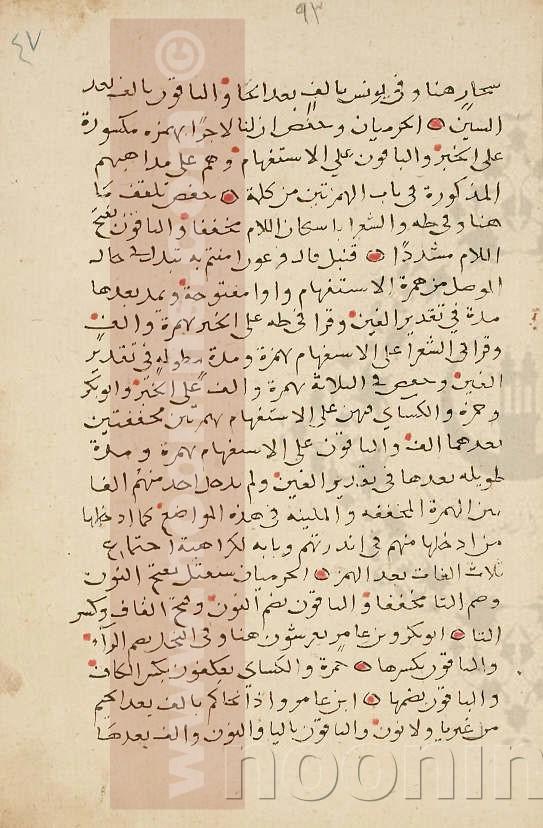 ٩٣
٤٧
سحار هنا وفي يونس بالف بعد الحا والباقون بالف بعد
السين الحرميان وحفص ان لنا لاجرا بهمزه مكسورة
على الخبر والباقون على الاستفهام وهم على مذاهبهم
المذكورة في باب الهمزتين من كلمة حفص تلقف ما
هنا وفي طه والشعرا باسكان اللام مخففا والباقون بفتح
اللام مشددا قنبل قال فرعون وامنتم به تبدل في حال
الوصل من همزة الاستفهام واوا مفتوحة ويمد بعدها
مدة في تقدير الفين وقرا في طه على الخبر بهمزة والف
وقرا في الشعرا على الاستفهام بهمزة ومدة مطولة في تقدير
الفين وحفص في الثلاثة بهمزة والف على الخبر وابوبكر
وحمزة والكساي فيهن على الاستفهام بهمزتين محققتين
بعدهما الف والباقون على الاستفهام بهمزة ومدة
طويله بعدها في تقدير الفين ولم يدخل احد منهم الفا
بين الهمزة المحققه والملينه في هذه المواضع كما ادخلها
من ادخلها منهم في اانذرتهم وبابه لكراهية اجتماع
ثلاث الفات بعد الهمز الحرميان سنقتل بفتح النون
وضم التا مخففا والباقون بضم النون وفتح القاف وكسر
التا ابوبكر وبن عامر يعرشون هنا وفي النحل بضم الراء
والباقون بكسرها حمزة والكساي يعكفون بكسر الكاف
والباقون بضمها ابن عامر واذ انجاكم بالف بعد الجيم
من غير يا ولا نون والباقون باليا والنون والف بعدها
www.noonin.com ©
noonin